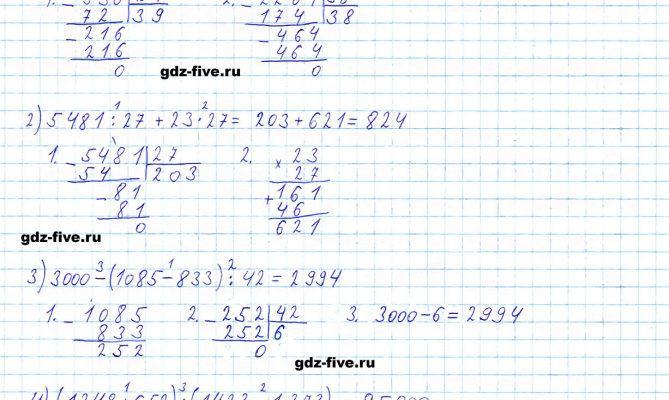 72 39 174 38
- 216 - 464
216 464
0 0
gdz-five.ru
1 2
2) 5481 : 27 + 23 · 27 = 203 + 621 = 824
1. - 5481 27 2. × 23
54 203 27
- 81 + 161
81 46
0 621
gdz-five.ru
3 1 2
3) 3000 - (1085 - 833) : 42 = 2994
1. - 1085 2. - 252 42 3. 3000 - 6 = 2994
833 252 6
252 0
gdz-five.ru